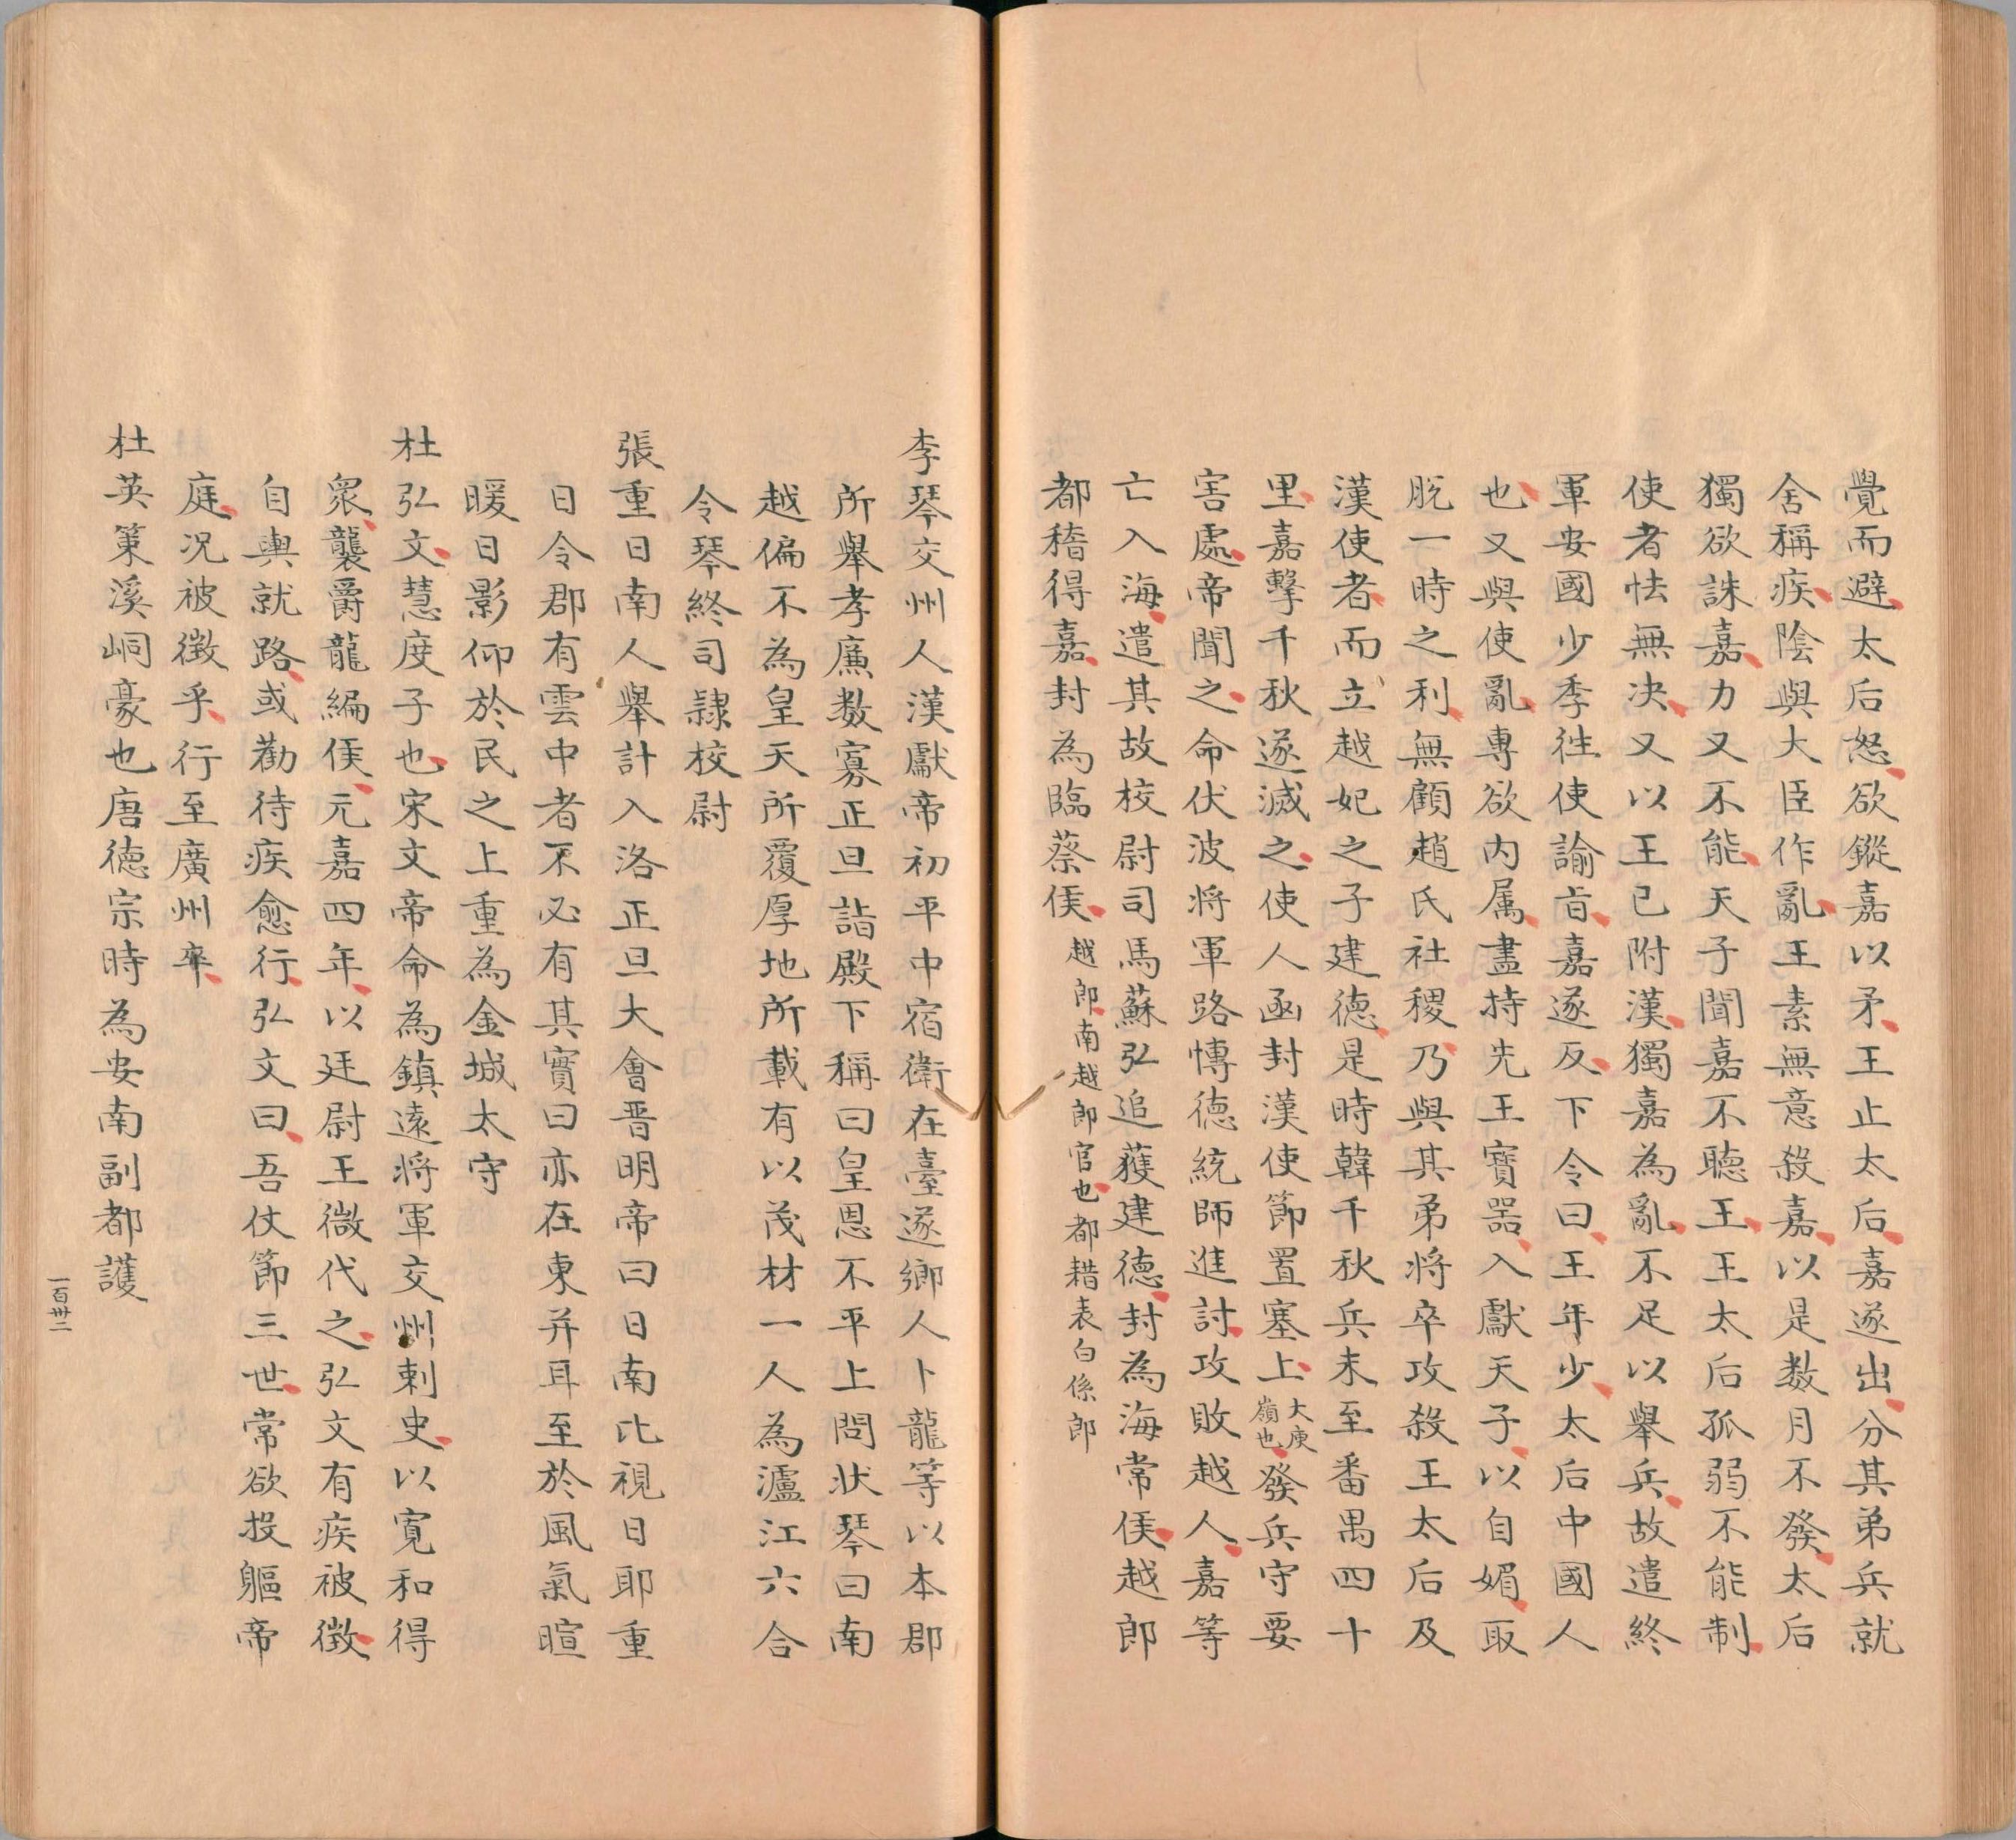 覺而避太后怒欲鏦嘉以矛王止太后嘉遂出分其弟兵就
舍稱疾陰與大臣作亂王素無意殺嘉以是数月不發太后
獨欲誅嘉力又不能天子聞嘉不聽王王太后孤弱不能制
使者怯無决又以王已附漢獨嘉為亂不足以舉兵故遣終
軍安國少季徃使諭旨嘉遂反下令曰王年少太后中國人
也又與使亂專欲内属盡持先王寳噐入獻天子以自媚取
脱一時之利無顧趙氏社稷乃與其弟将卒攻殺王太后及
漢使者而立越妃之子建徳是時韓千秋兵未至番禺四十
里嘉擊千秋遂滅之使人函封漢使節置塞上大庾嶺也發兵守要
害處帝聞之命伏波将軍路愽徳統師進討攻敗越人嘉等
亡入海遣其故校尉司馬蘇弘追獲建徳封為海常侯越郎
都稽得嘉封為臨蔡侯越郎南越郎官也都耤表白係郎
李琴交州人漢獻帝初平中宿衛在臺遂鄉人卜龍等以本郡
所舉孝廉数寡正旦詣殿下稱曰皇恩不平上問状琴曰南
越偏不為皇天所覆厚地所載有以茂材一人為瀘江六合
令琴終司隷校尉
張重日南人舉計入洛正旦大會晋明帝曰日南比視日耶重
日令郡有雲中者不必有其實曰亦在東并耳至於風氣暄
暖日影仰於民之上重為金城太守
杜弘文慧度子也宋文帝命為鎮遠将軍交州刺史以寛和得
衆襲爵龍編侯元嘉四年以廷尉王微代之弘文有疾被徴
自輿就路或勸待疾愈行弘文曰吾仗節三世常欲投軀帝
庭况被徴乎行至廣州卒
杜英策溪峒豪也唐徳宗時為安南副都護
一百卅二